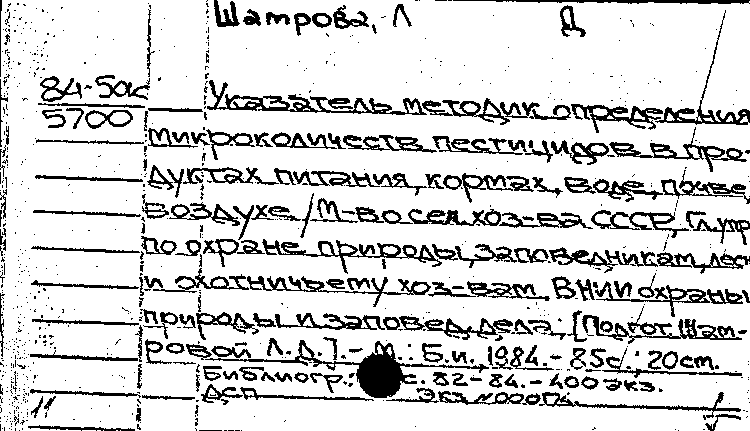 Шатрова, Л Д
84-50к
5700
Указатель методик определения
микроколичеств пестицидов в про-
дуктах питания, кормах, воде, почве,
воздухе / М-во сел. хоз-ва СССР, Гл. упр.
по охране природы, заповедникам, лесн
и охотничьему хоз-вам, ВНИИ охраны
природы и заповед. дела; [Подгот. Шат-
ровой Л.Д.]. - М.: Б.и., 1984. - 85с.; 20см.
Библиогр.: с. 82-84. - 400 экз.
ДСП Экз.
11